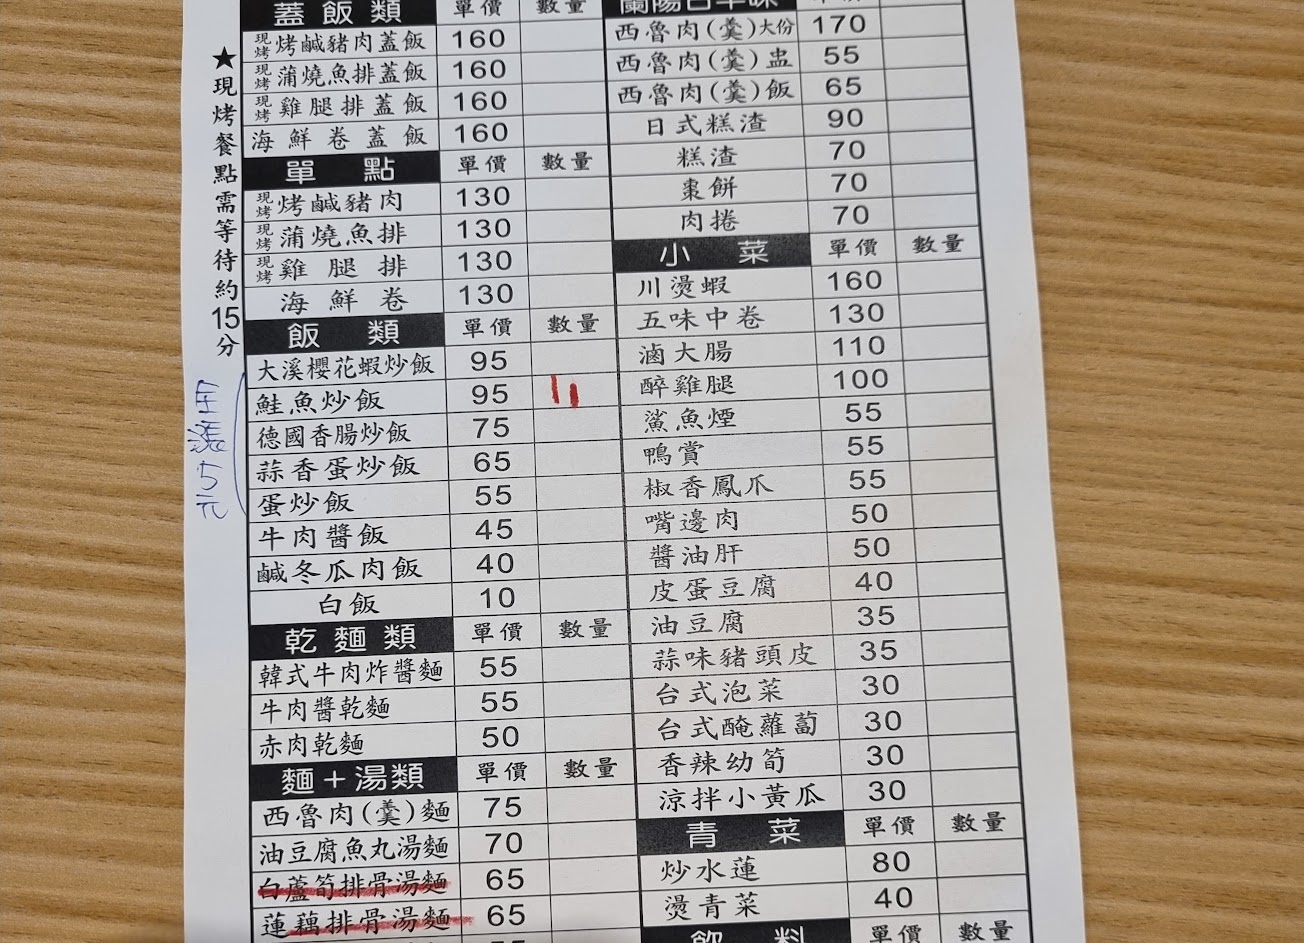 ★現烤餐點需等待約15分
全漲5元
蓋飯類 單價 數量
現烤 烤鹹豬肉蓋飯 160
現烤 蒲燒魚排蓋飯 160
現烤 雞腿排蓋飯 160
海鮮卷蓋飯 160
單點 單價 數量
現烤 烤鹹豬肉 130
現烤 蒲燒魚排 130
現烤 雞腿排 130
海鮮卷 130
飯類 單價 數量
大溪櫻花蝦炒飯 95
鮭魚炒飯 95
德國香腸炒飯 75
蒜香蛋炒飯 65
蛋炒飯 55
牛肉醬飯 45
鹹冬瓜肉飯 40
白飯 10
乾麵類 單價 數量
韓式牛肉炸醬麵 55
牛肉醬乾麵 55
赤肉乾麵 50
麵+湯類 單價 數量
西魯肉(羹)麵 75
油豆腐魚丸湯麵 70
白蘆筍排骨湯麵 65
蓮藕排骨湯麵 65
西魯肉(羹)大份 170
西魯肉(羹)盅 55
西魯肉(羹)飯 65
日式糕渣 90
糕渣 70
棗餅 70
肉捲 70
小菜 單價 數量
川燙蝦 160
五味中卷 130
滷大腸 110
醉雞腿 100
鯊魚煙 55
鴨賞 55
椒香鳳爪 55
嘴邊肉 50
醬油肝 50
皮蛋豆腐 40
油豆腐 35
蒜味豬頭皮 35
台式泡菜 30
台式醃蘿蔔 30
香辣幼筍 30
涼拌小黃瓜 30
青菜 單價 數量
炒水蓮 80
燙青菜 40
飲料 單價 數量